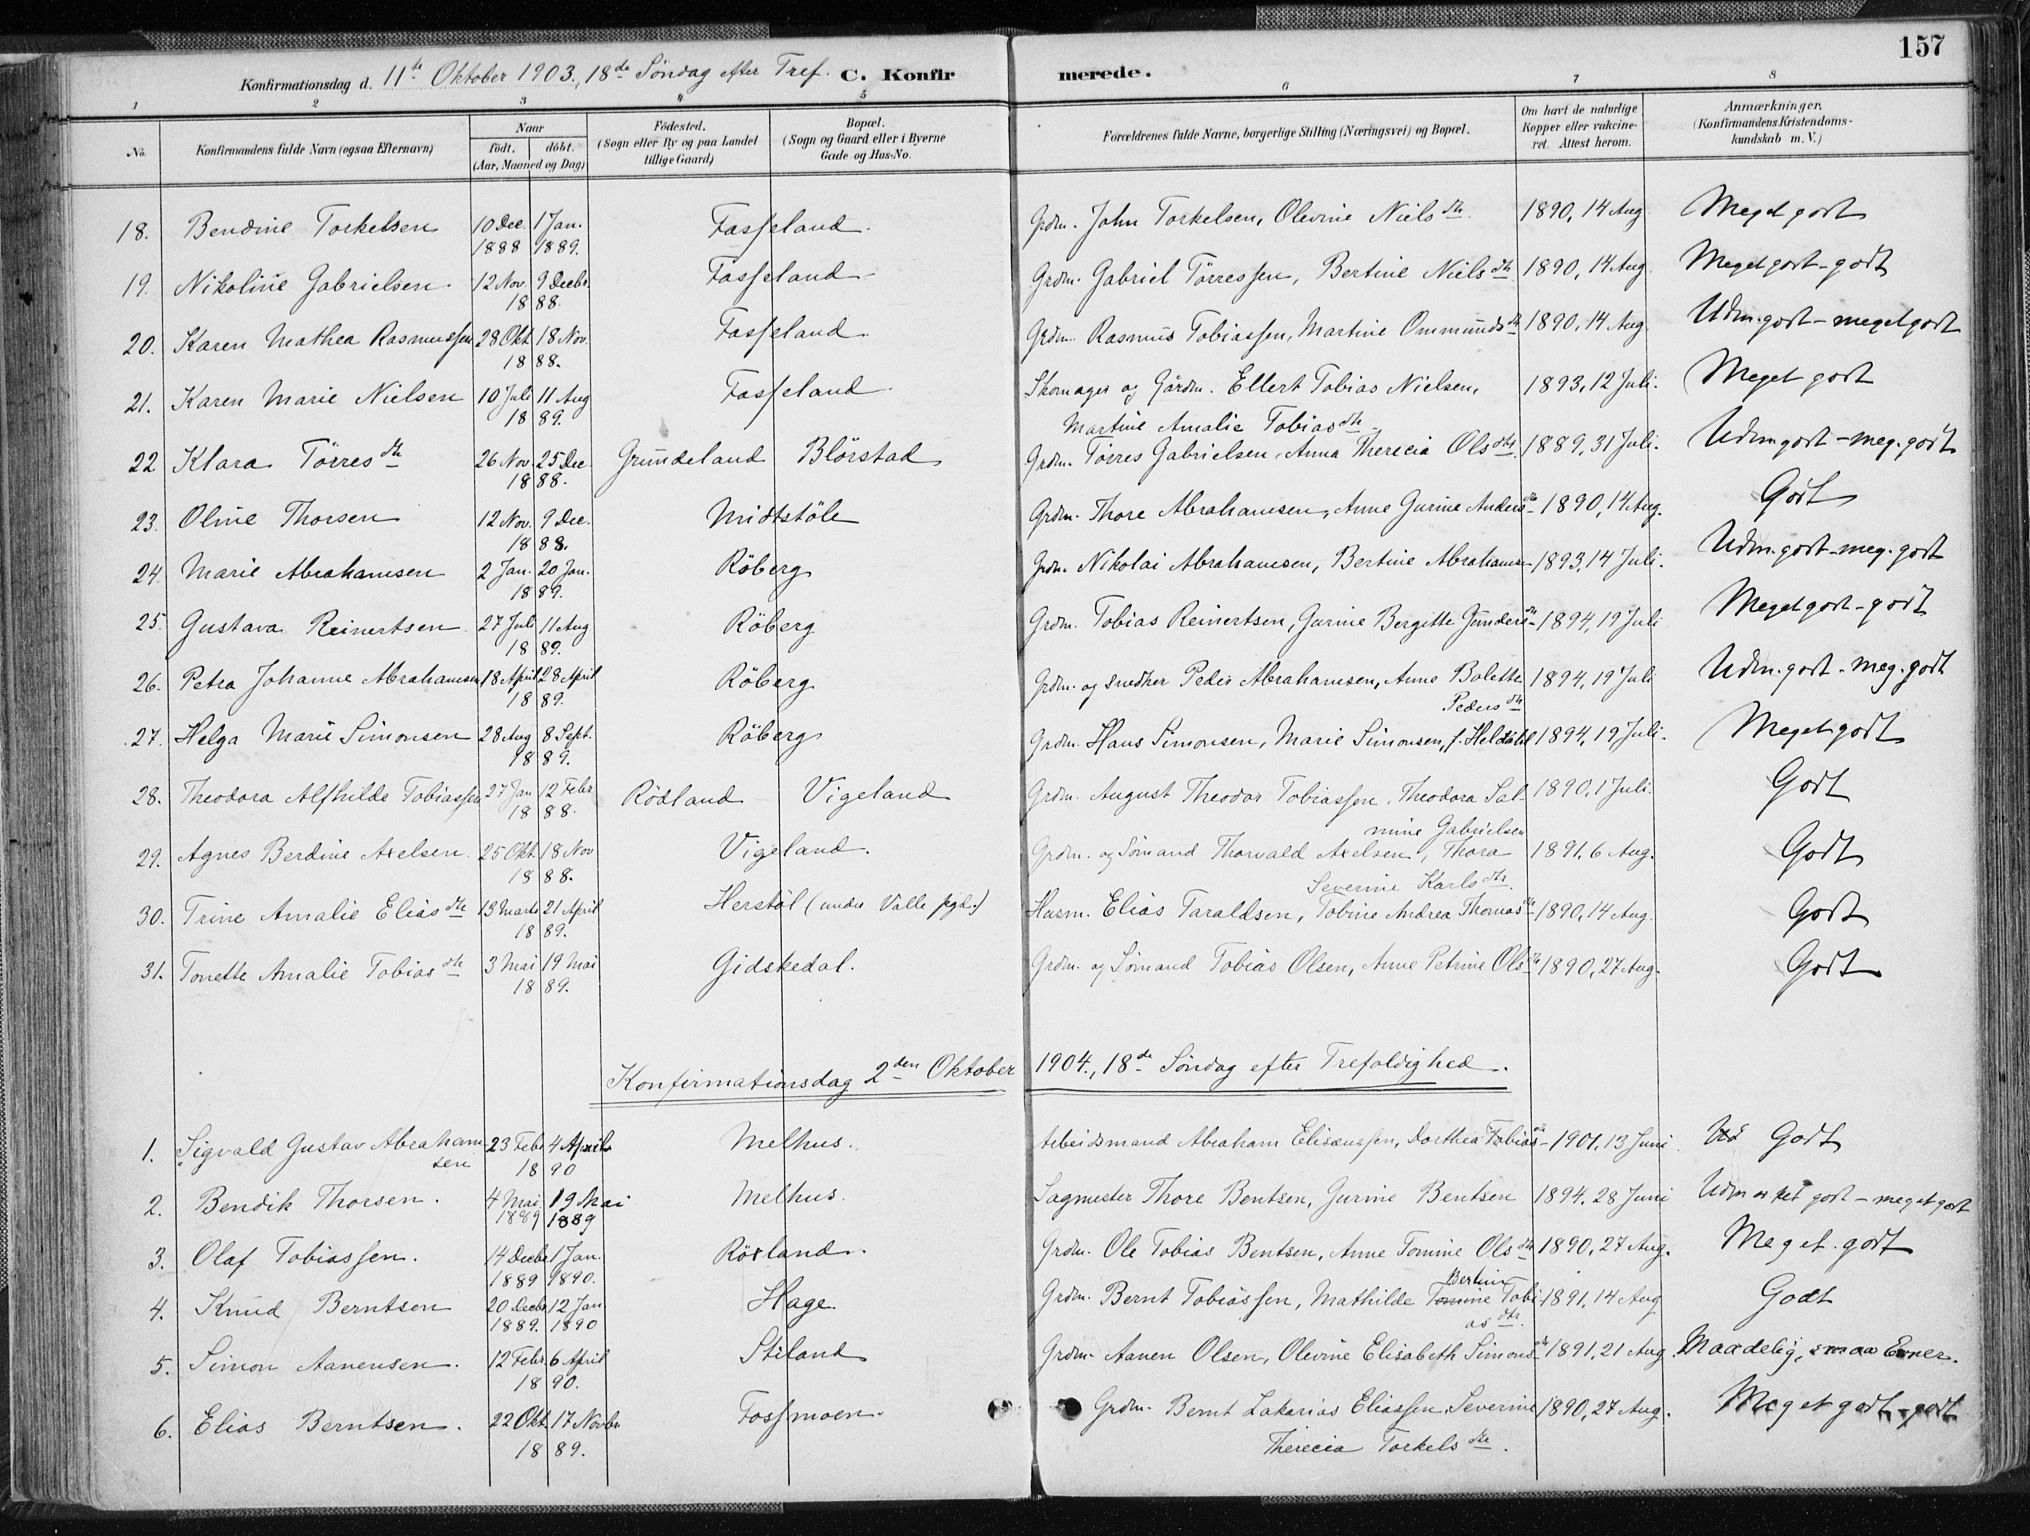 157
Konfirmationsdag d. 11te Oktober 1903, 18de Söndag efter Tref. C. Konfirmerede.
1 2 3 4 5 6 7 8
No. Konfirmandens fulde Navn (ogsaa Efternavn) Naar født. døbt. (Aar, Maaned og Dag) Fødested. (Sogn eller By og paa Landet tillige Gaard) Bopæl. (Sogn og Gaard eller i Byerne Gade og Hus-No. Forældrenes fulde Navne, borgerlige Stilling (Næringsvei) og Bopæl. Om havt de naturlige Kopper eller vaccineret. Attest herom. Anmærkninger. (Konfirmandens Kristendomskundskab m. V.)
18. Bendine Torkelsen 10 Dec. 1 Jan. Fasseland. Grdm. John Torkelsen, Olevine Nielsdtr. 1890, 14 Aug. Meget godt
1888 1889.
19. Nikoline Gabrielsen. 12 Nov. 9 Decbr. Fasseland Grdm. Gabriel Törressen, Bertine Nielsdtr 1890, 14 Aug. Meget godt - godt
1888.
20. Karen Mathea Rasmussen 28 Okt 18 Nov. Fasseland. Grdm. Rasmus Tobiassen, Martine Ommundsdtr 1890, 14 Aug. Udm. godt - meget godt
1888.
21. Karen Marie Nielsen 10 Juli 11 Aug Fasseland. Skomager og Gårdm. Ellert Tobias Nielsen, 1893, 12 Juli. Meget godt
1889. Martine Amalie Tobiasdtr
22 Klara Törresdtr 26 Nov. 25 Dec. Grundeland Blörstad Grdm. Törres Gabrielsen, Anna Therecia Olsdtr. 1889, 31 Juli. Udm godt - meg. godt
1888.
23. Oline Thorsen 12 Nov. 9 Dec. Midtstöle Grdm. Thore Abrahamsen, Anne Gurine Andersdtr 1890, 14 Aug. Godt
1888.
24. Marie Abrahamsen 2 Jan. 20 Jan. Röberg Grdm. Nikolai Abrahamsen, Bertine Abrahamsen 1893, 14 Juli. Udm. godt - meg. godt
1889.
25. Gustava Reinertsen 27 Juli 11 Aug Röberg Grdm. Tobias Reinertsen, Gurine Bergitte Gundersdtr 1894, 19 Juli Meget godt - godt
1889.
26. Petra Johanne Abrahamsen 18 April 28 April Röberg Grdm. og snedker Peder Abrahamsen, Anne Bolette 1894, 19 Juli Udm. godt - meg. godt
1889. Pedersdtr
27. Helga Marie Simonsen 28 Aug 8 Sept. Röberg Grdm. Hans Simonsen, Marie Simonsen, f. Heldahl 1894, 19 Juli. Meget godt
1889.
28. Theodora Alfhilde Tobiassen 27 Jan 12 Febr Rödland Vigeland Grdm. August Theodor Tobiassen, Theodora Sal- 1890, 1 Juli. Godt
1888. mine Gabrielsen
29. Agnes Berdine Axelsen 25 Okt 18 Nov Vigeland. Grdm. og Sömand Thorvald Axelsen, Thora 1891, 6 Aug. Godt
1888. Severine Karlsdtr.
30. Trine Amalie Eliasdtr 13 Marts 21 April Herstöl (under Valle pgd.) Husm. Elias Taraldsen, Tobine Andrea Thomasdtr 1890, 14 Aug. Godt
1889.
31. Tonette Amalie Tobiasdtr 3 Mai 19 Mai Gidskedal. Grdm. og Sömand Tobias Olsen, Anne Petrine Olsdtr 1890, 27 Aug. Godt
1889.
Konfirmationsdag 2den Oktober 1904, 18de Söndag efter Trefoldighed.
1. Sigvald Gustav Abraham- 23 Febr 4 April Melhus. Arbeidsmand Abraham Elisæussen, Dorthea Tobiasdtr 1901, 13 Juni. Godt
sen 1890
2. Bendik Thorsen. 4 Mai 19 Mai Melhus. Sagmester Thore Bentsen, Gurine Bentsen 1894, 28 Juni Udmerket godt - meget godt
1889 1889
3. Olaf Tobiassen. 14 Decbr 1 Jan. Röxland. Grdm. Ole Tobias Bentsen, Anne Tomine Olsdtr 1890, 27 Aug. Meget godt
1889 1890.
4. Knud Berntsen 20 Decbr 12 Jan Hage Grdm. Bernt Tobiassen, Mathilde Bertine Tobi- 1891, 14 Aug Godt
1889. 1890 asdtr.
5. Simon Aanensen. 12 Febr 6 April Stiland Grdm. Aanen Olsen, Olevine Elisabeth Simonsdtr 1891, 21 Aug. Maadelig, smaa Evner.
1890.
6. Elias Berntsen. 22 Okt 17 Novbr Fossmoen. Grdm. Bernt Zakarias Eliassen, Severine 1890, 27 Aug. Meget godt - godt
1889. Therecia Torkelsdtr.